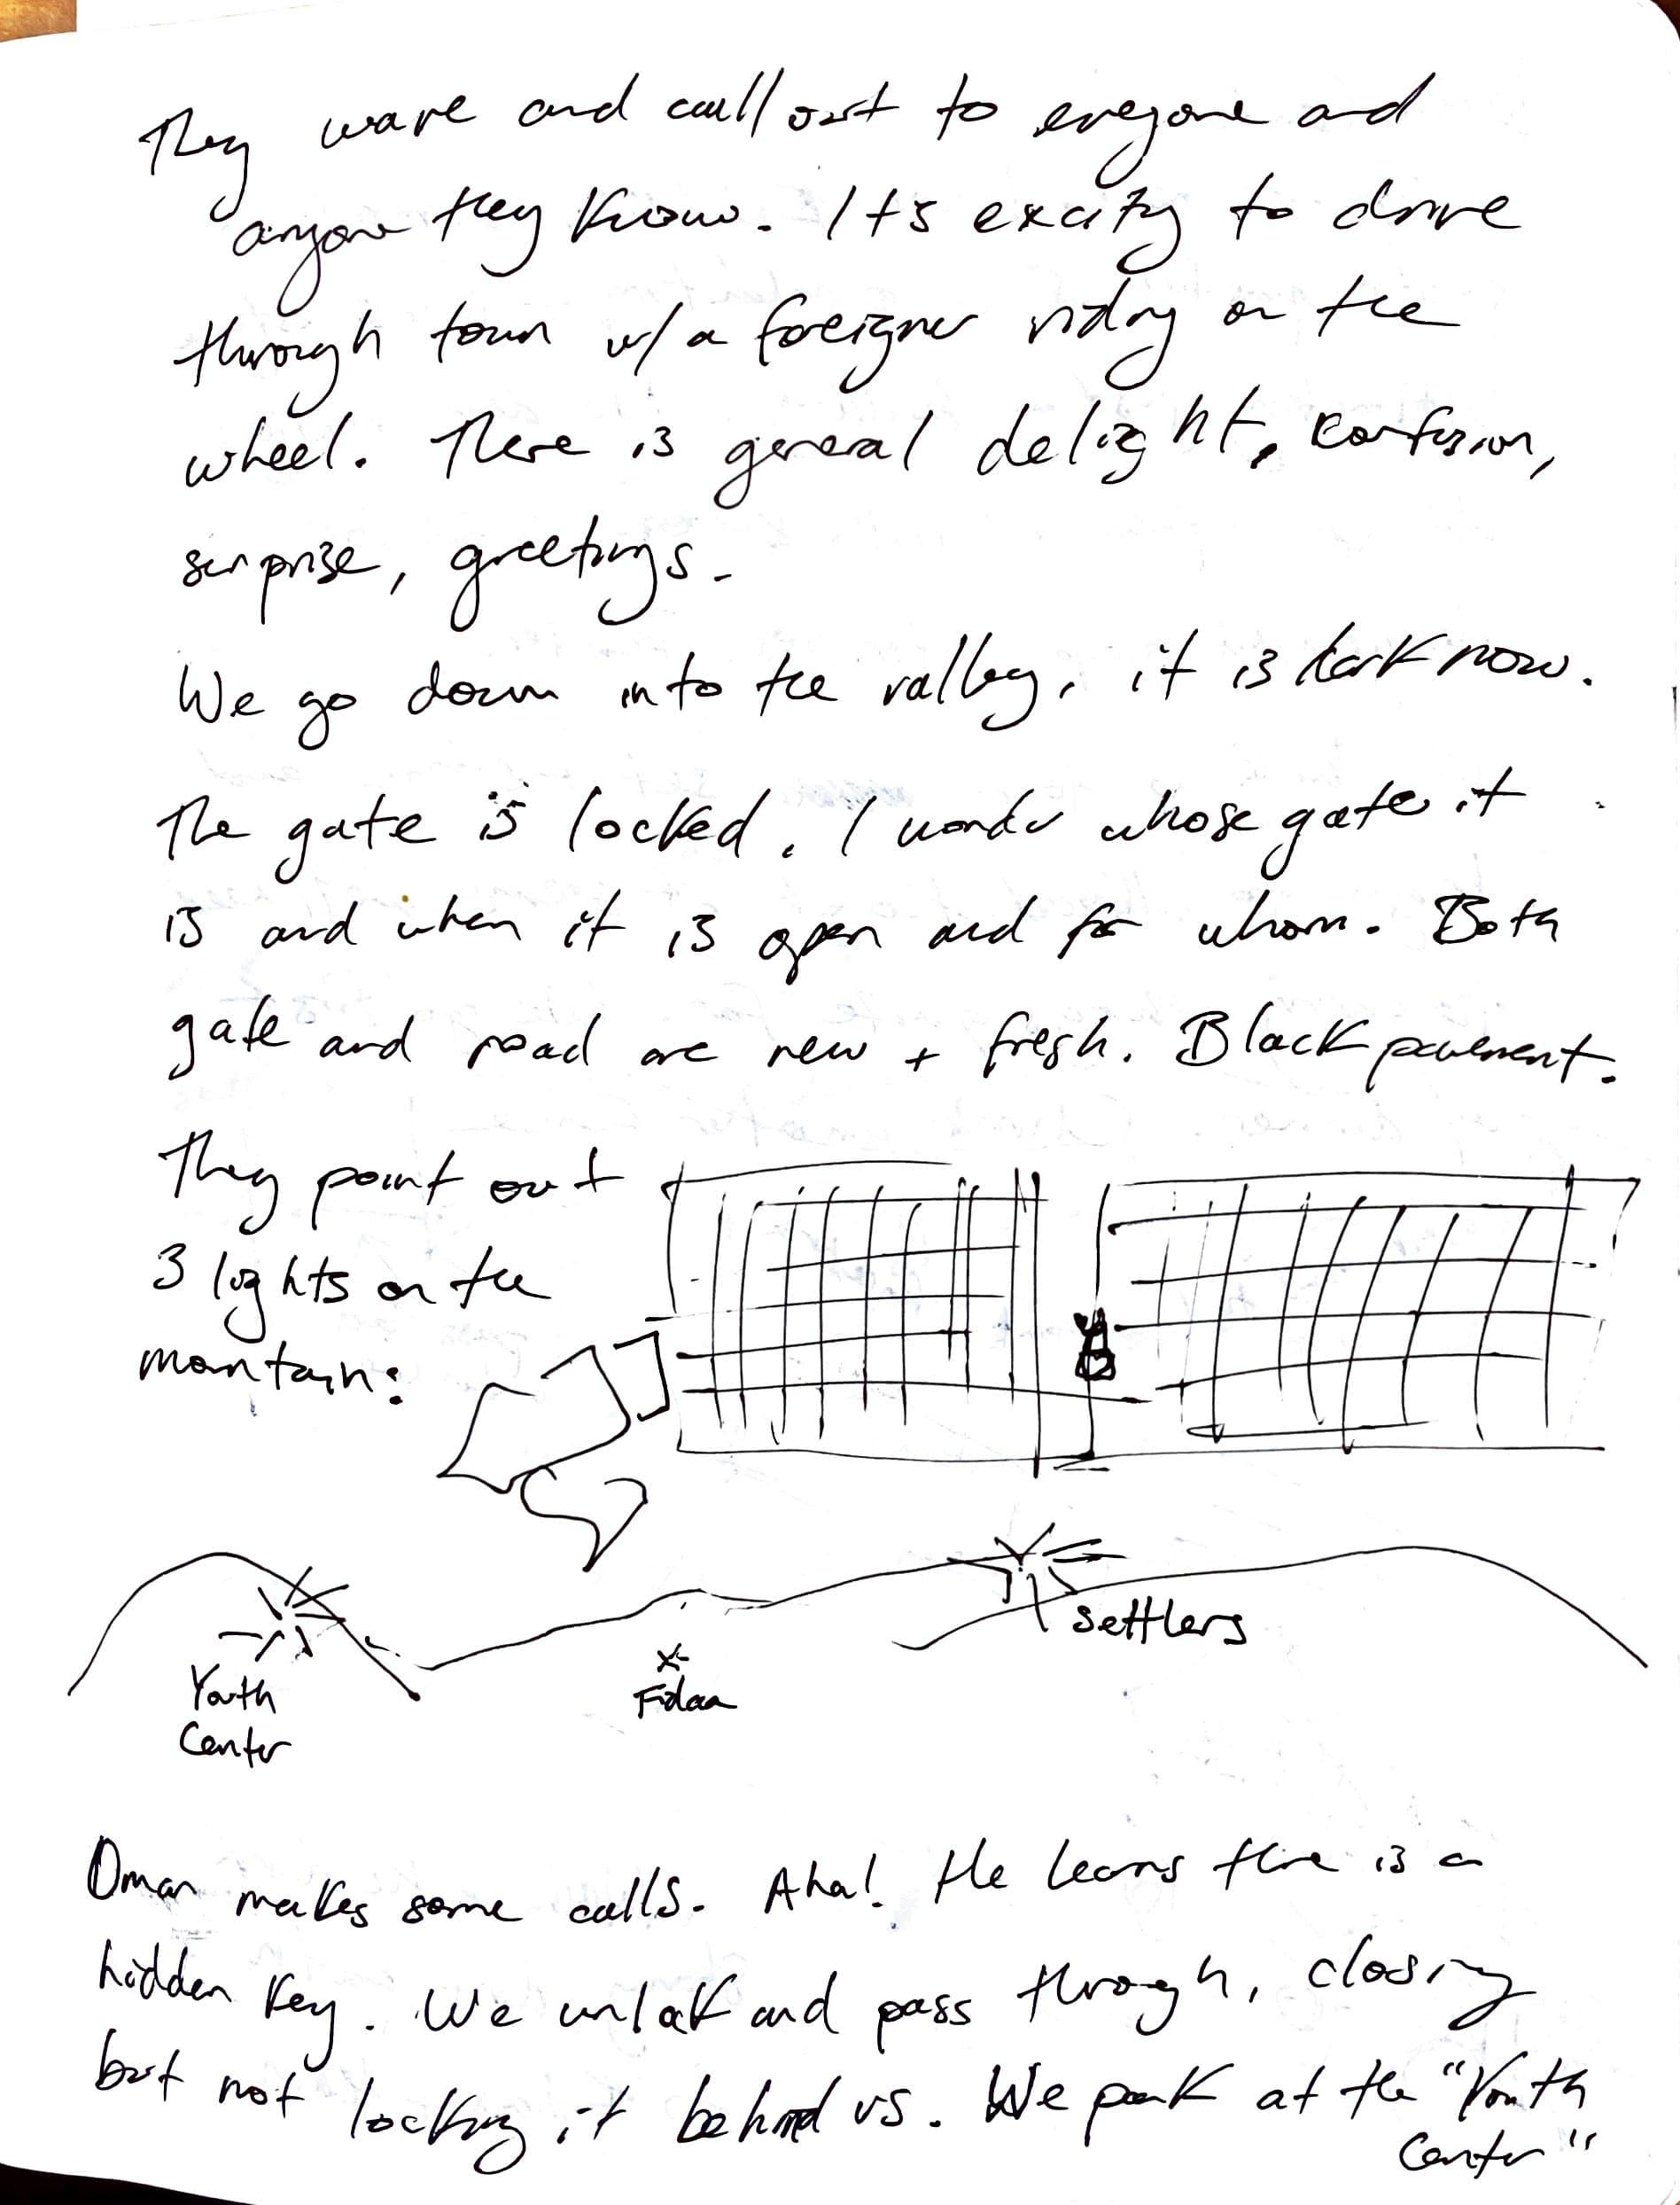 They wave and call out to everyone and
anyone they know. It's exciting to drive
through town w/ a foreigner riding on the
wheel. There is general delight, confusion,
surprise, greetings.
We go down into the valley, it is dark now.
The gate is locked. I wonder whose gate it
is and when it is open and for whom. Both
gate and road are new + fresh. Black pavement.
They point out
3 lights on the
mountain:
Settlers
Youth
Center
x
Fidaa
Omar makes some calls. Aha! He learns there is a
hidden key. We unlock and pass through, closing
but not locking it behind us. We park at the "Youth
Center"